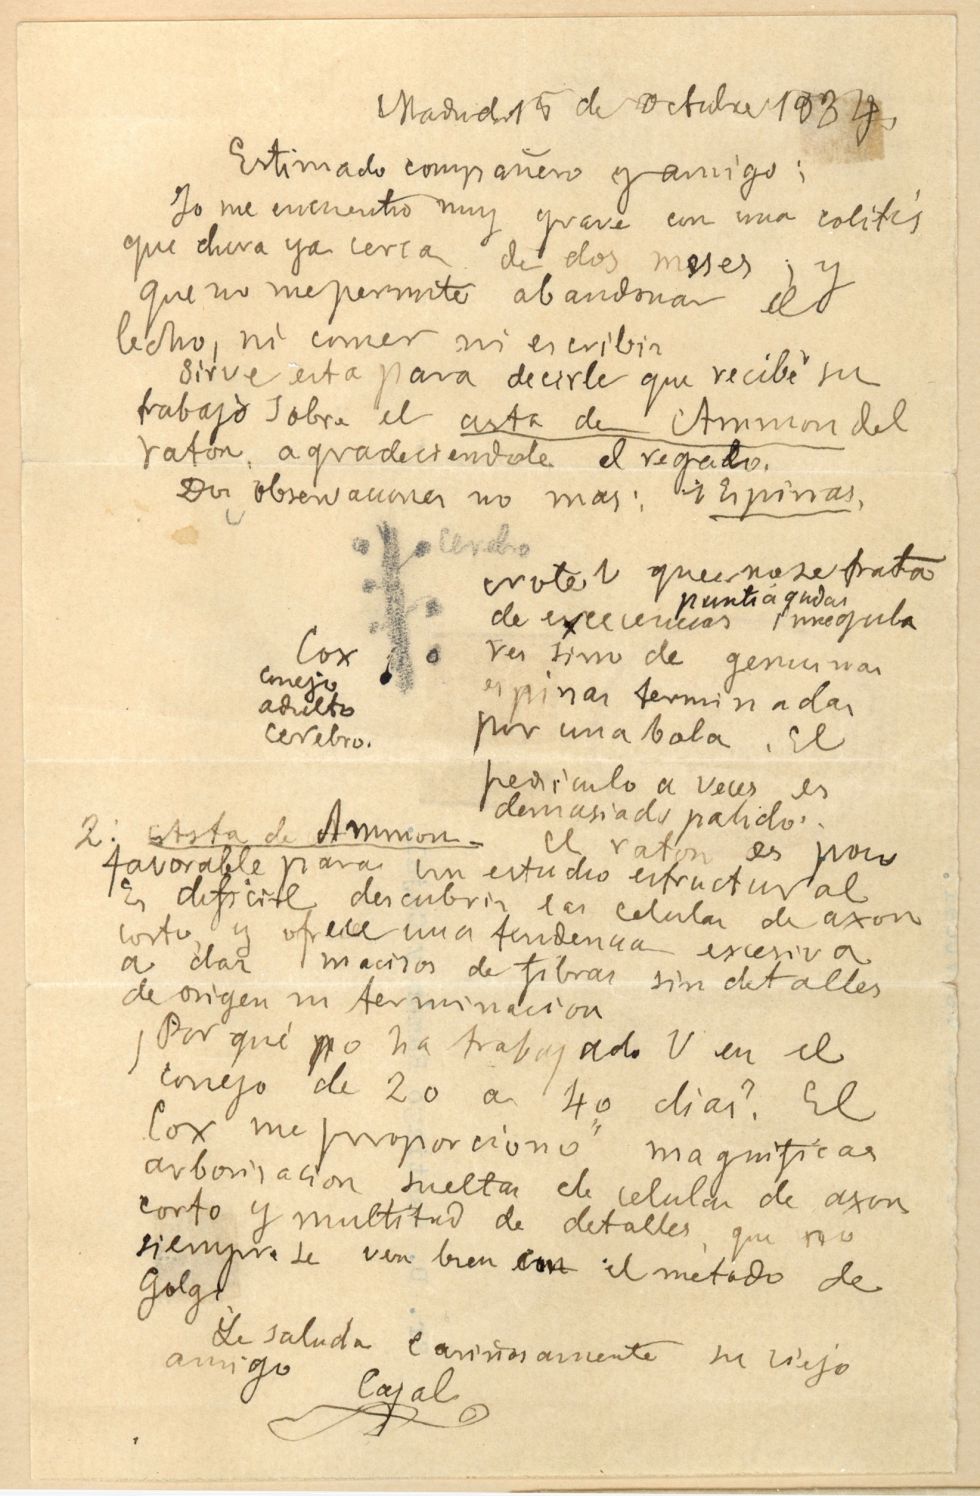 Madrid 15 de octubre 1934.
Estimado compañero y amigo:
Yo me encuentro muy grave con una colitis
que dura ya cerca de dos meses, y
que no me permite abandonar el
lecho, ni comer ni escribir
Sirve esta para decirle que recibí su
trabajo sobre el asta de Ammon del
raton, agradeciendole el regalo.
Dos observaciones no mas: 1 Espinas.
cerebro
note V que no se trata
puntiagudas
de excecencias irregula
res sino de genuinas
espinas terminadas
por una bola. El
pediculo a veces es
demasiado palido.
Cox
conejo
adulto
cerebro.
2: Asta de Ammon. El raton es poco
favorable para un estudio estructural
Es deficil descubrir las celulas de axon
corto, y ofrece una tendencia excesiva
a dar macisos de fibras sin detalles
de origen ni terminacion
¿Por qué no ha trabajado V en el
conejo de 20 a 40 dias?. El
Cox me proporcionó magnificas
arborisacion sueltas de celulas de axon
corto y multitud de detalles, que no
siempre se ven bien con el metodo de
Golgi
Le saluda cariñosamente su viejo
amigo
Cajal